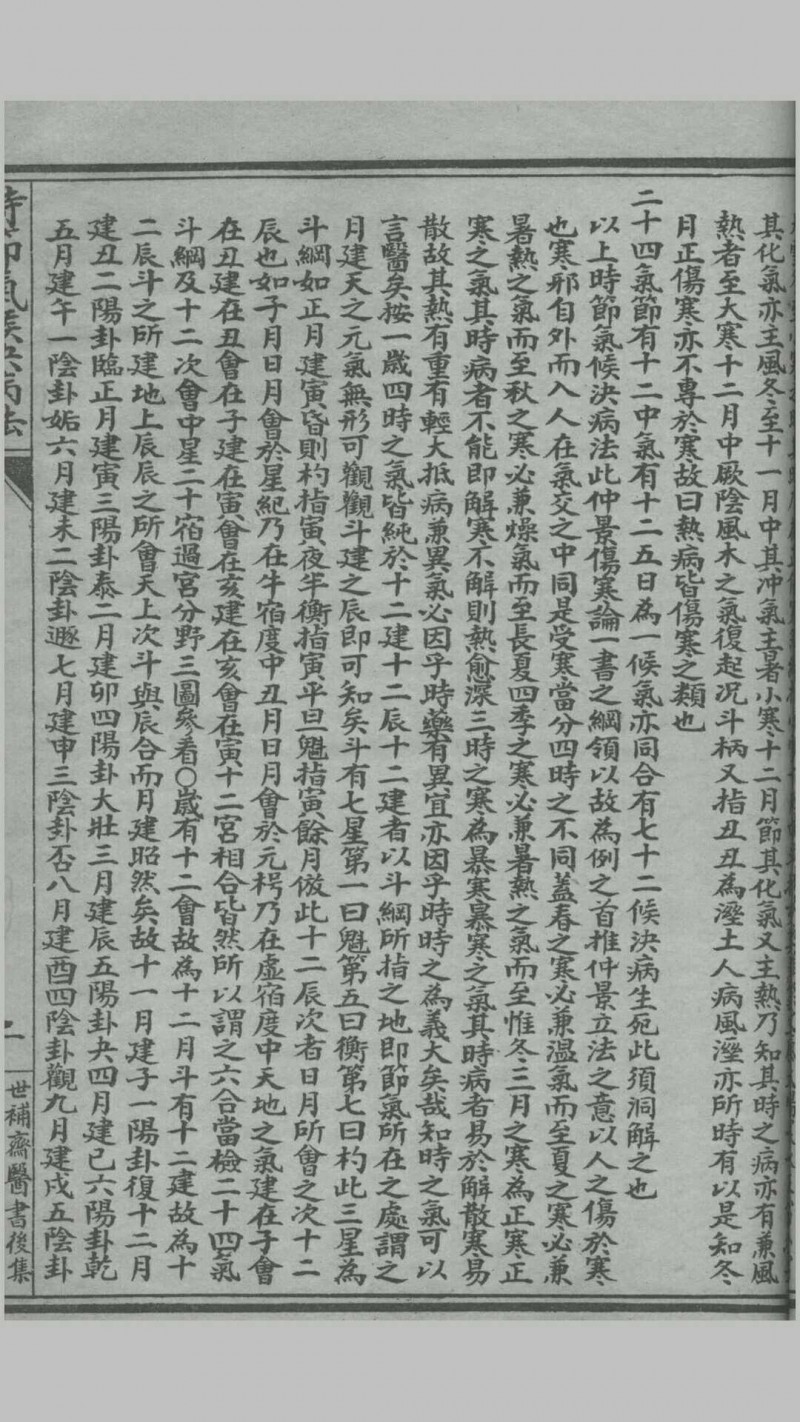 其化氣亦主風冬至十一月中其冲氣主暑小寒十二月節其化氣又主熱乃知其時之病亦有兼風
熱者至大寒十二月中厥陰風木之氣復起况斗柄又指丑丑為溼土人病風溼亦所時有以是知冬
月正傷寒亦不專於寒故曰熱病皆傷寒之類也
二十四氣節有十二中氣有十二五日為一候氣亦同合有七十二候決病生死此須洞解之也
以上時節氣候決病法此仲景傷寒論一書之綱領以故為例之首推仲景立法之意以人之傷於寒
也寒邪自外而入人在氣交之中同是受寒當分四時之不同蓋春之寒必兼溫氣而至夏之寒必兼
暑熱之氣而至秋之寒必兼燥氣而至長夏四季之寒必兼暑熱之氣而至惟冬三月之寒為正寒正
寒之氣其時病者不能即解寒不解則熱愈深三時之寒為暴寒暴寒之氣其時病者易於解散寒易
散故其熱有重有輕大抵病兼異氣必因乎時藥有異宜亦因乎時時之為義大矣哉知時之氣可以
言醫矣按一歲四時之氣皆純於十二建十二辰十二建者以斗綱所指之地即節氣所在之處謂之
月建天之元氣無形可觀觀斗建之辰即可知矣斗有七星第一曰魁第五曰衡第七曰杓此三星為
斗綱如正月建寅昏則杓指寅夜半衡指寅平旦魁指寅餘月倣此十二辰次者日月所會之次十二
辰也如子月日月會於星紀乃在牛宿度中丑月日月會於元枵乃在虛宿度中天地之氣建在子會
在丑建在丑會在子建在寅會在亥建在亥會在寅十二宮相合皆然所以謂之六合當檢二十四氣
斗綱及十二次會中星二十宿過宮分野三圖參看○歲有十二會故為十二月斗有十二建故為十
二辰斗之所建地上辰辰之所會天上次斗與辰合而月建昭然矣故十一月建子一陽卦復十二月
建丑二陽卦臨正月建寅三陽卦泰二月建卯四陽卦大壯三月建辰五陽卦夬四月建巳六陽卦乾
五月建午一陰卦姤六月建未二陰卦遯七月建申三陰卦否八月建酉四陰卦觀九月建戌五陰卦
時節氣候決病法
二
世補齋醫書後集